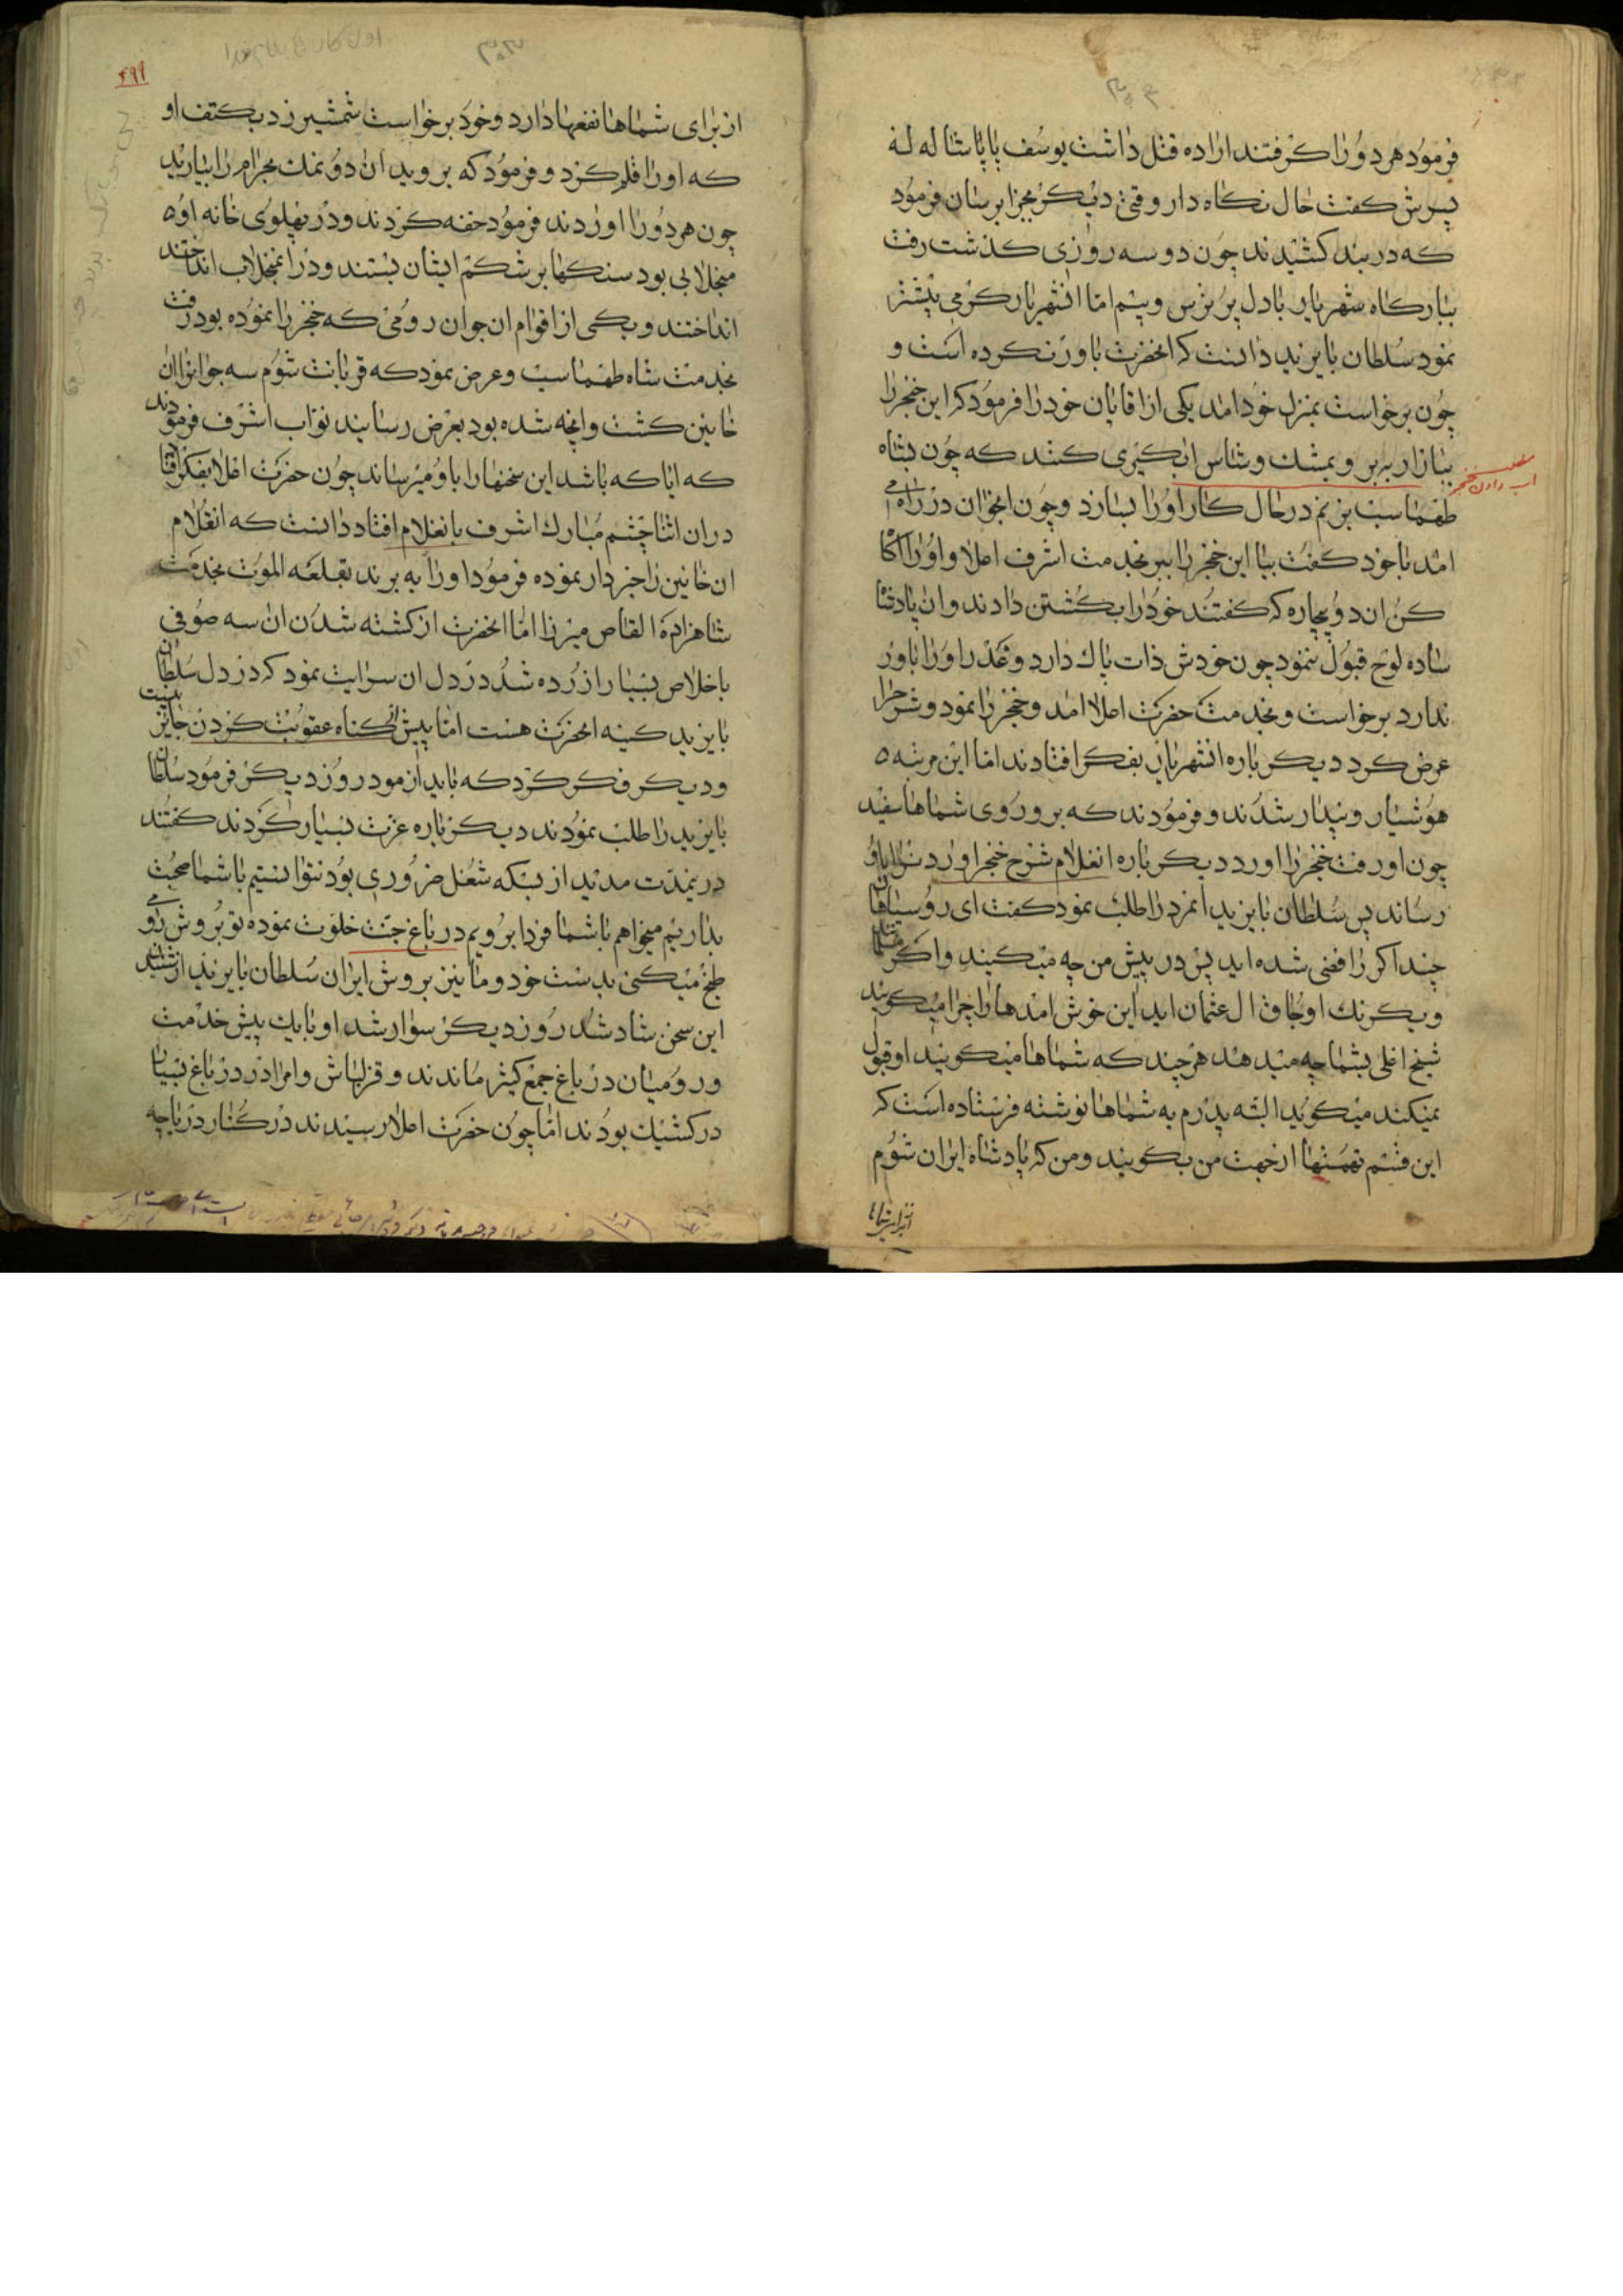 فرمود هر دو را کرفتند اراده قتل داشت یوسف پاپاشا له له
پسرش کفت حال نکاه دار وقتی دیکر مجزا برسان فرمود
که در بند کشیدند چون دو سه روزی کذشت رفت
ببارکاه شهریار با دل پر ترس و بیم اما انشهریار کرمی بیشتر
نمود سلطان بایزید دانست که انحضرت باور نکرده است و
چون برخواست بمنزل خود امد یکی از اقایان خود را فرمود که این خنجر را
ببازار ببر و بمشک و شاس اب کیری کنند که چون بشاه
طهماسب بزنم در حال کار او را بسازد و چون انجوان در راه می
امد با خود کفت بیا این خنجر را ببر بخدمت اشرف اعلا و او را اکاه
کن ان دو بیچاره که کفتند خود را بکشتن دادند و ان پادشاه
ساده لوح قبول ننمود چون خودش ذات پاک دارد و غدر او را باور
ندارد برخواست و بخدمت حضرت اعلا امد و خنجر را نمود و شرح را
عرض کرد دیکر باره انشهریار بفکر افتادند اما این مرتبه
هوشیار و بیدار شدند و فرمودند که برو روی شماها سفید
چون او رفت خنجر را اورد دیکر باره انغلام شرح خنجر اوردن را باو
رساند پس سلطان بایزید انمرد را طلب نمود کفت ای روسیاهان
چند اکر رافضی شده اید پس در پیش من چه میکنید و اکر مسلمان
و یکرنک اوجاق ال عثمان اید این خوش امدها را چرا میکویید
شیخ اغلی بشما چه میدهد هر چند که شماها میکویید او قبول
نمیکند میکویید البته پدرم به شماها نوشته فرستاده است که
این قسم تهمتها از جهت من بکویید و من که پادشاه ایران شوم
مطلب
اب دادن خنجر
۴۹۹
از برای شماها نفعها دارد و خود برخواست شمشیر زد بکتف او
که او را قلم کرد و فرمود که بروید ان دو نمک بحرام را بیارید
چون هر دو را اوردند فرمود خفه کردند و در پهلوی خانه او
منجلابی بود سنکها بر شکم ایشان بستند و در انمنجلاب انداختند
انداختند و یکی از اقوام ان جوان رومی که خنجر را نموده بود رفت
بخدمت شاه طهماسب و عرض نمود که قربانت شوم سه جوانرا ان
خاین کشت و انچه شده بود بعرض رسانید نواب اشرف فرمودند
که ایا که باشد این سخنها را باو میرساند چون حضرت اعلا بفکر افتاد
در ان اثنا چشم مبارک اشرف بانغلام افتاد دانست که انغلام
ان خاین را خبردار نموده فرمود او را به برند بقلعه الموت بخدمت
شاهزاده القاص میرزا اما انحضرت از کشته شدن ان سه صوفی
باخلاص بسیار ازرده شد در دل ان سرایت نمود که در دل سلطان
بایزید کینه انحضرت هست اما پیش از کناه عقوبت کردن جایز نیست
و دیکر فکر کرد که باید ازمود روز دیکر فرمود سلطان
بایزید را طلب نمودند دیکر باره عزت بسیار کردند کفتند
درینمدت مدید از بسکه شغل ضروری بود نتوانستیم با شما صحبت
بداریم میخواهم با شما فردا برویم در باغ جنت خلوت نموده تو بروش رومی
طبخ میکنی بدست خود و ما نیز بروش ایران سلطان بایزید از شنیدن
این سخن شاد شد روز دیکر سوار شد او با یک پیش خدمت
و رومیان در باغ جمع کثیر ماندند و قزلباش و امرا در در باغ بسیار
در کشیک بودند اما چون حضرت اعلا رسیدند در کنار دریاچه